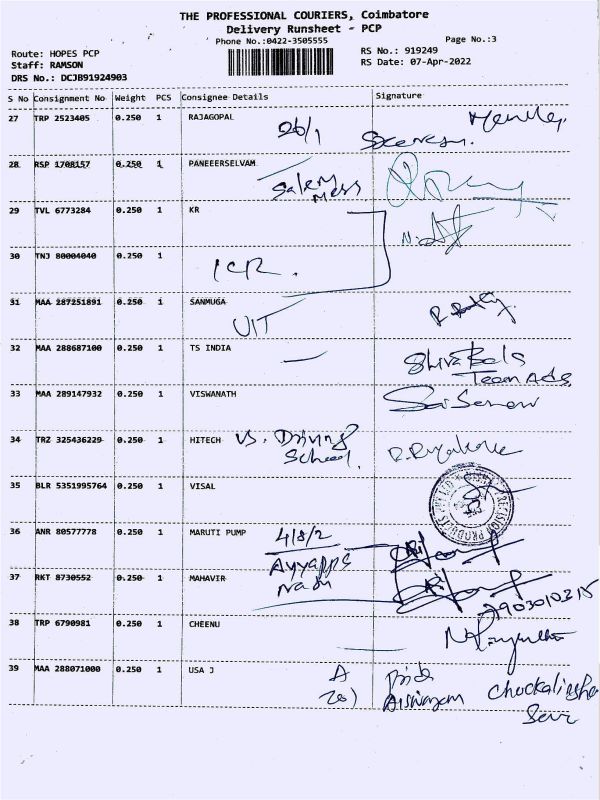 THE PROFESSIONAL COURIERS, Coimbatore
Delivery Runsheet - PCP
Phone No.:0422-3505555 Page No.:3
Route: HOPES PCP RS No.: 919249
Staff: RAMSON RS Date: 07-Apr-2022
DRS No.: DCJB91924903
S No Consignment No Weight PCS Consignee Details Signature
27 TRP 2523405 0.250 1 RAJAGOPAL
26/1
28 RSP 1708157 0.250 1 PANEEERSELVAM
Salem
Mess
29 TVL 6773284 0.250 1 KR
30 TNJ 80004040 0.250 1
ICR.
31 MAA 287251891 0.250 1 SANMUGA
UIT
32 MAA 288687100 0.250 1 TS INDIA
Shiva Bals
Team Ads
33 MAA 289147932 0.250 1 VISWANATH
34 TRZ 325436229 0.250 1 HITECH VS. Driving
School.
35 BLR 5351995764 0.250 1 VISAL
36 ANR 80577778 0.250 1 MARUTI PUMP 4/8/2
Ayyappa
Nadu
37 RKT 8730552 0.250 1 MAHAVIR
2903010315
38 TRP 6790981 0.250 1 CHEENU
39 MAA 288071000 0.250 1 USA J A
201